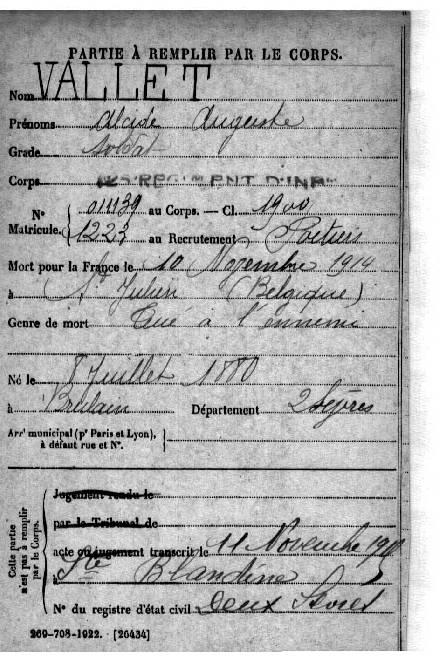 PARTIE À REMPLIR PAR LE CORPS.
Nom VALLET
Prénoms Alcide Auguste
Grade Soldat
Corps 125 REGIMENT D'INF
N° Matricule. 011139 au Corps. — Cl. 1900
1223 au Recrutement Poitiers
Mort pour la France le 10 Novembre 1914
à St Julien (Belgique)
Genre de mort Tué à l'ennemi
Né le 8 Juillet 1880
à Brulain Département 2 Sèvres
Arrt municipal (pr Paris et Lyon),
à défaut rue et N°.
Cette partie n'est pas à remplir par le Corps.
Jugement rendu le
par le Tribunal de
acte ou jugement transcrit le 11 Novembre
à Ste Blandine
N° du registre d'état civil Deux Sèvres
269-708-1922. [26434]